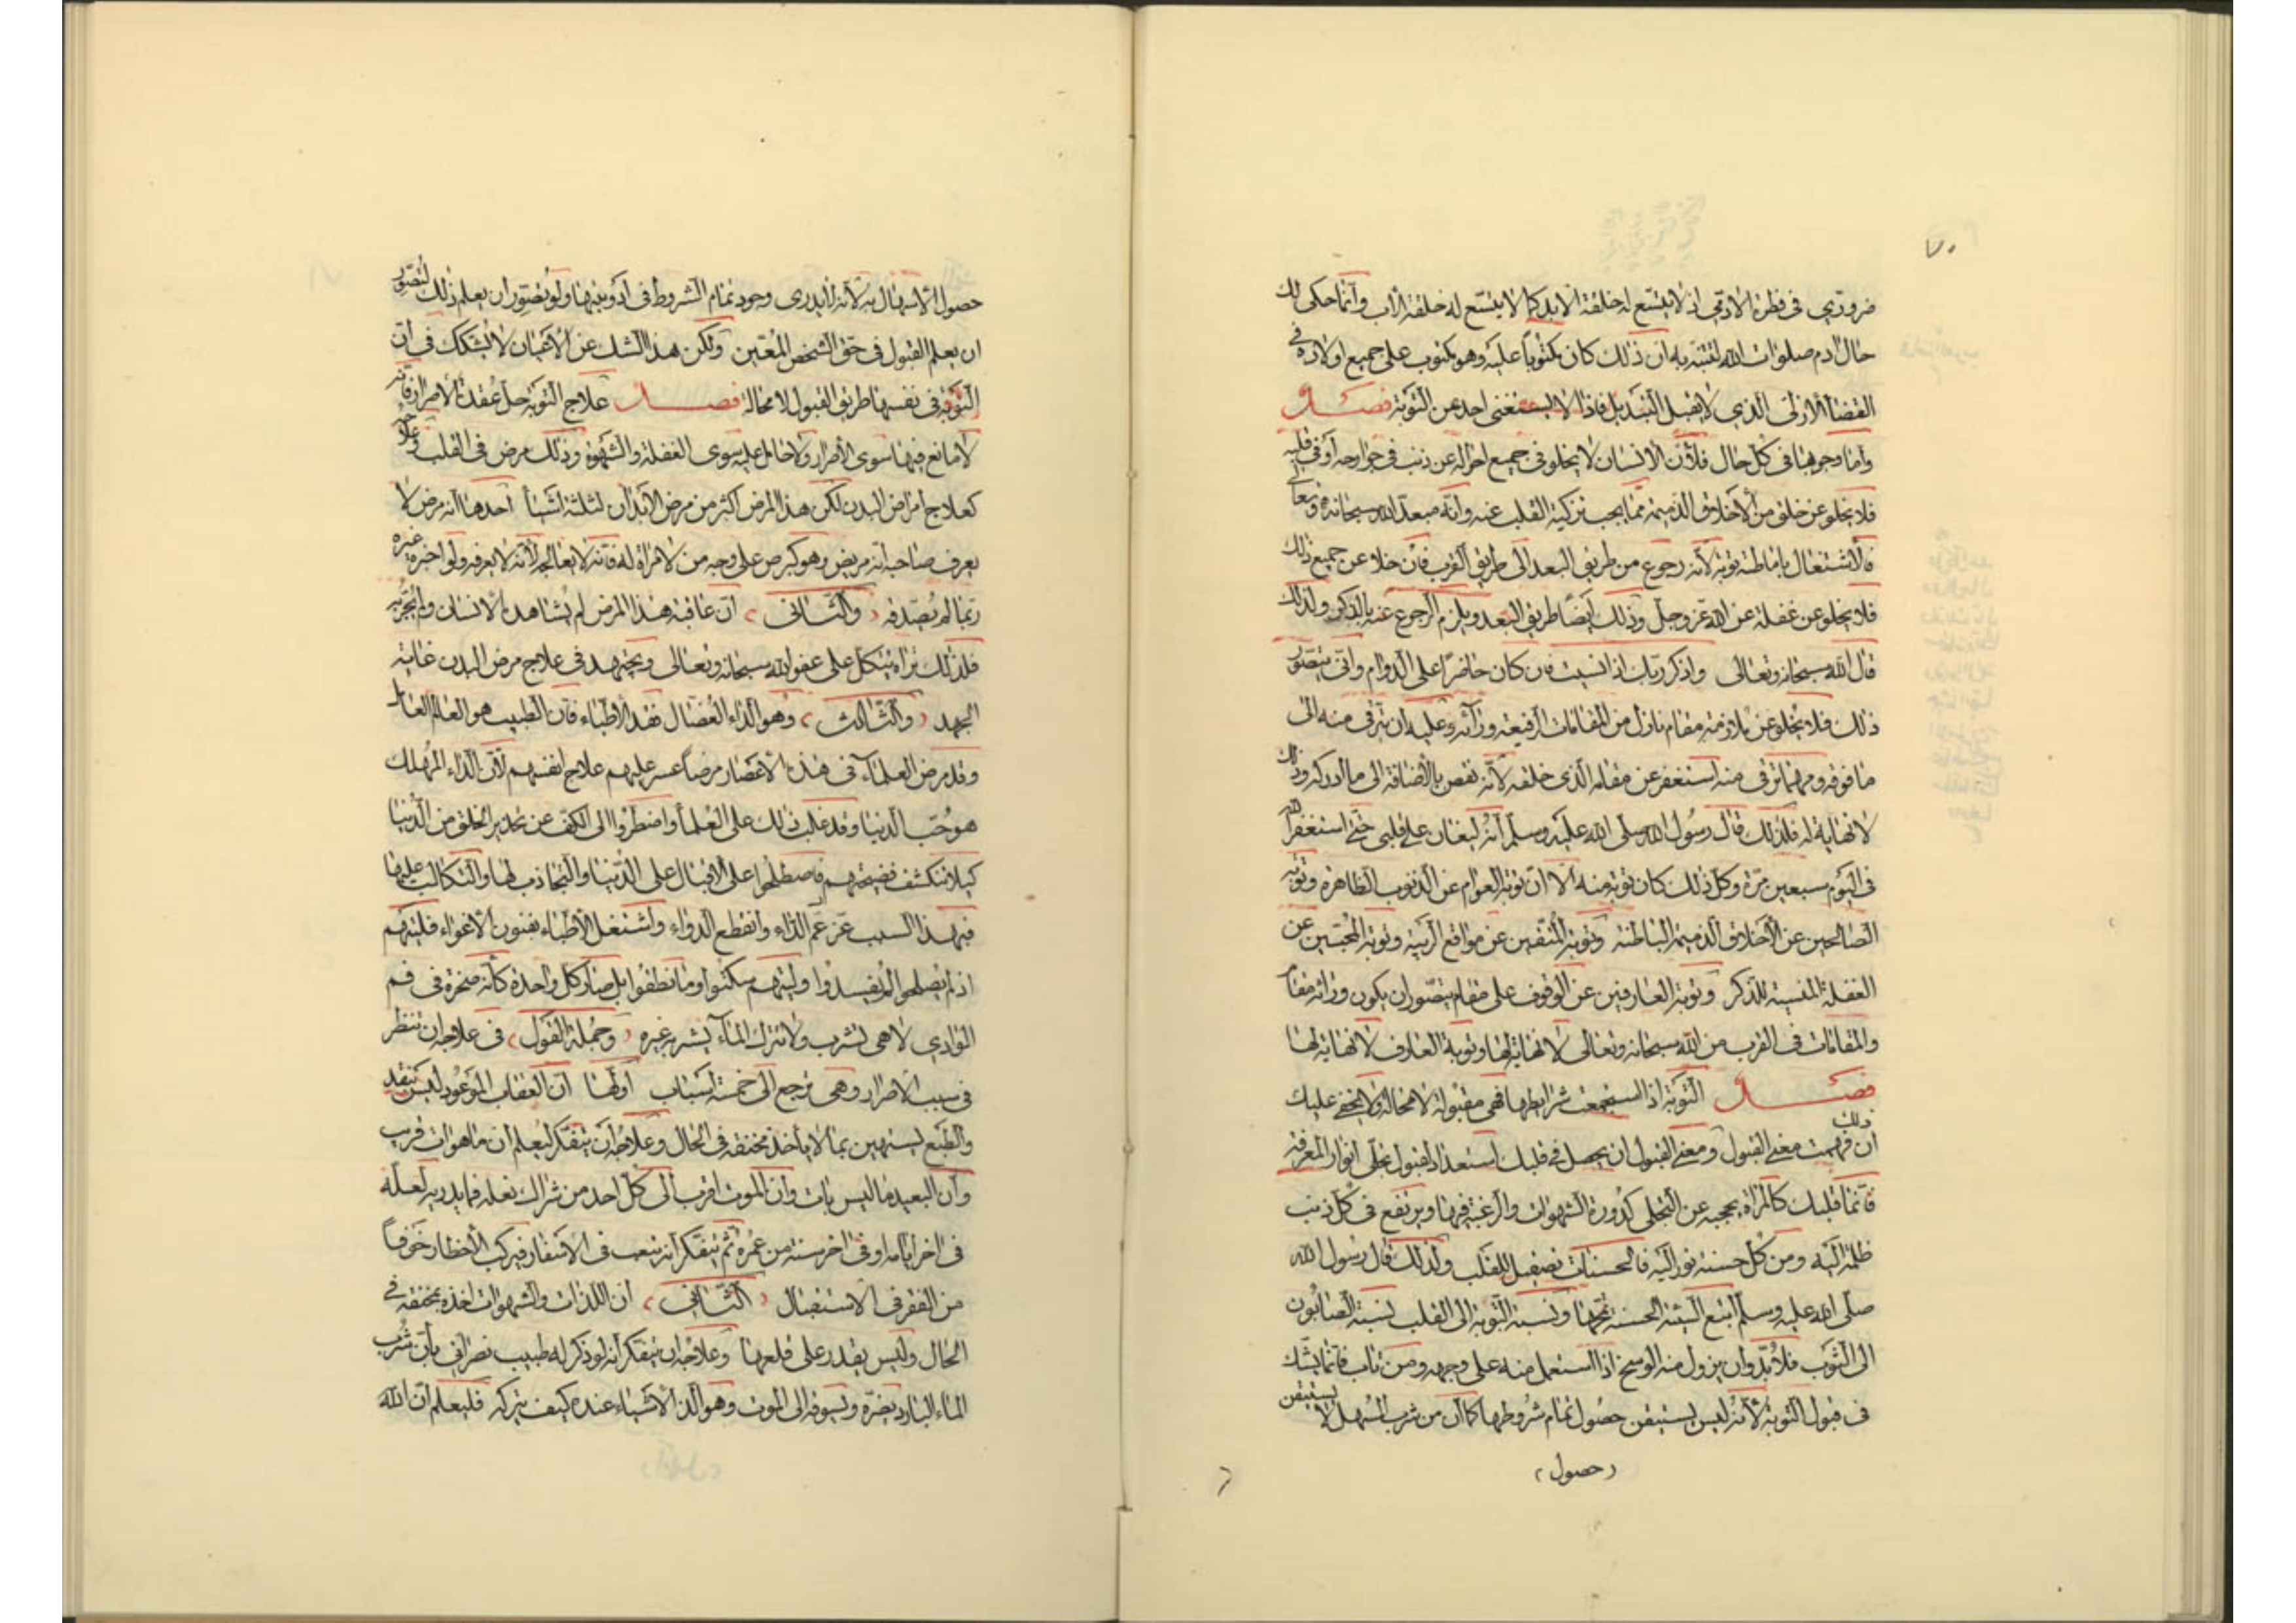 ٧٠
ضروري في فطرة الآدمي اذ لا يتسع له خلقة الابد كما لا يتسع له خلقة الأب وانما حكى لك
حال آدم صلوات الله لتنتبه به ان ذلك كان مكتوباً عليه وهو مكتوب على جميع اولاده في
القضاء الازلى الذي لا يقبل التبديل فاذا لا يستغنى احد عن التوبة فصل
واما وجوبها في كل حال فلأن الانسان لا يخلو في جميع احواله عن ذنب في جوارحه أو في قلبه
فلا يخلو عن خلق من الاخلاق الذميمة مما يجب تزكية القلب عنه وانه مبعد الله سبحانه وتعالى
فالاشتغال باماطته توبة لأنه رجوع من طريق البعد الى طريق القرب فان خلا عن جميع ذلك
فلا يخلو عن غفلة عن الله عز وجل وذلك ايضاً طريق البعد ويلزم الرجوع عنه بالذكر ولذلك
قال الله سبحانه وتعالى واذكر ربك اذا نسيت فان كان حاضراً على الدوام وانى يتصور
ذلك فلا يخلو عن ملازمة مقام نازل من المقامات الرفيعة ورآئه وعليه ان يترقى منه الى
ما فوقه ومهما ترقى منه استغفر عن مقامه الذى خلفه لأنه نقص بالاضافة الى ما ادركه وذلك
لا نهاية له فلذلك قال رسول الله صلى الله عليه وسلم انه ليغان على قلبي حتى استغفر الله
فى اليوم سبعين مرة وكل ذلك كان توبة منه الا ان توبة العوام عن الذنوب الظاهرة وتوبة
الصالحين عن الأخلاق الذميمة الباطنة وتوبة المتقين عن مواقع الريبة وتوبة المحبين عن
الغفلة المنسية للذكر وتوبة العارفين عن الوقوف على مقام يتصور ان يكون ورائه مقام
والمقامات فى القرب من الله سبحانه وتعالى لا نهاية لها وتوبة العارف لا نهاية لها
فصل التوبة اذا استجمعت شرايطها فهى مقبولة لا محالة ولا يخفى عليك
ذلك
ان فهمت معنى القبول ومعنى القبول ان يحصل في قلبك استعداد لقبول تجلى انوار المعرفة
فانما قلبك كالمرآة يحجبه عن التجلى كدورة الشهوات والرغبة فيها ويرتفع فى كل ذنب
ظلمة اليه ومن كل حسنة نور اليه فالحسنات تصقيل للقلب ولذلك قال رسول الله
صلى الله عليه وسلم اتبع السيئة الحسنة تمحها ونسبة التوبة الى القلب نسبة الصابون
الى الثوب فلا بد وان يزول منه الوسخ اذا استعمل منه على وجهه ومن تاب فانما يشك
فى قبول التوبة لأنه ليس يستيقن حصول تمام شروطها كما ان من شرب المسهل لا يستيقن
(حصول)
حصول الاسهال به لأنه لا يدرى وجود تمام الشروط فى ادويتها ولو تصور ان يعلم ذلك لتصور
ان يعلم القبول فى حق الشخص المعين ولكن هذا الشك عن الاعيان لا يشكك فى ان
التوبة فى نفسها طريق القبول لا محالة فصل علاج التوبة حل عقدة الاصرار فانه
لا مانع فيها سوى الاصرار ولا حامل عليه سوى الغفلة والشهوة وذلك مرض فى القلب وعلاجه
كعلاج امراض البدن لكن هذا المرض اكثر من مرض الابدان لثلثة اشياء احدها انه مرض لا
يعرف صاحبه انه مريض وهو كبرص على وجه من لا مرآة له فانه لا يعالجه لأنه لا يعرفه ولو اخبره غيره
ربما لم يصدقه (والثانى) ان عاقبة هذا المرض لم يشاهدها الانسان ولم يجربه
فلذلك تراه يتكل على عفو الله سبحانه وتعالى ويجتهد فى علاج مرض البدن غاية
الجهد (والثالث) وهو الداء العضال فقد الاطباء فان الطبيب هو العالم العامل
وقد مرض العلماء فى هذه الاعصار مرضاً عسر عليهم علاج انفسهم لأن الداء المهلك
هو حب الدنيا وقد غلب ذلك على العلماء واضطروا الى الكف عن تحذير الخلق من الدنيا
كيلا تنكشف فضيحتهم فاصطلحوا على الاقبال على الدنيا والتجاذب لها والتكالب عليها
فبهذا السبب عز عم الداء وانقطع الدواء واشتغل الاطباء بفنون الاغواء فليتهم
اذ لم يصلحوا لم يفسدوا وليتهم سكتوا وما نطقوا بل صار كل واحدة كأنه صخرة فى فم
الوادي لا هى تشرب ولا تترك الماء يشربه غيره (وجملة القول) فى علاجه ان تنظر
فى سبب الاصرار وهى ترجع الى خمسة اسباب اولها ان العقاب الموعود ليس بنقد
والطبع يستهين بما لا يأخذ بمخنقه فى الحال وعلاجه ان يتفكر ليعلم ان ما هو آت قريب
وان البعيد ما ليس بآت وان الموت اقرب الى كل احد من شراك نعله فما يدريه لعله
فى اخر ايامه او فى اخر سنة من عمره ثم يتفكر انه يتعب فى الاسفار فيركب الأخطار خوفاً
من الفقر فى الاستقبال (الثانى) ان اللذات والشهوات اخذه بمخنقه فى
الحال وليس يقدر على قلعها وعلاجه ان يتفكر انه لو ذكر له طبيب نصرانى بأن شرب
الماء البارد يضره ويسوقه الى الموت وهو ألذ الاشياء عنده كيف يتركه فليعلم ان الله